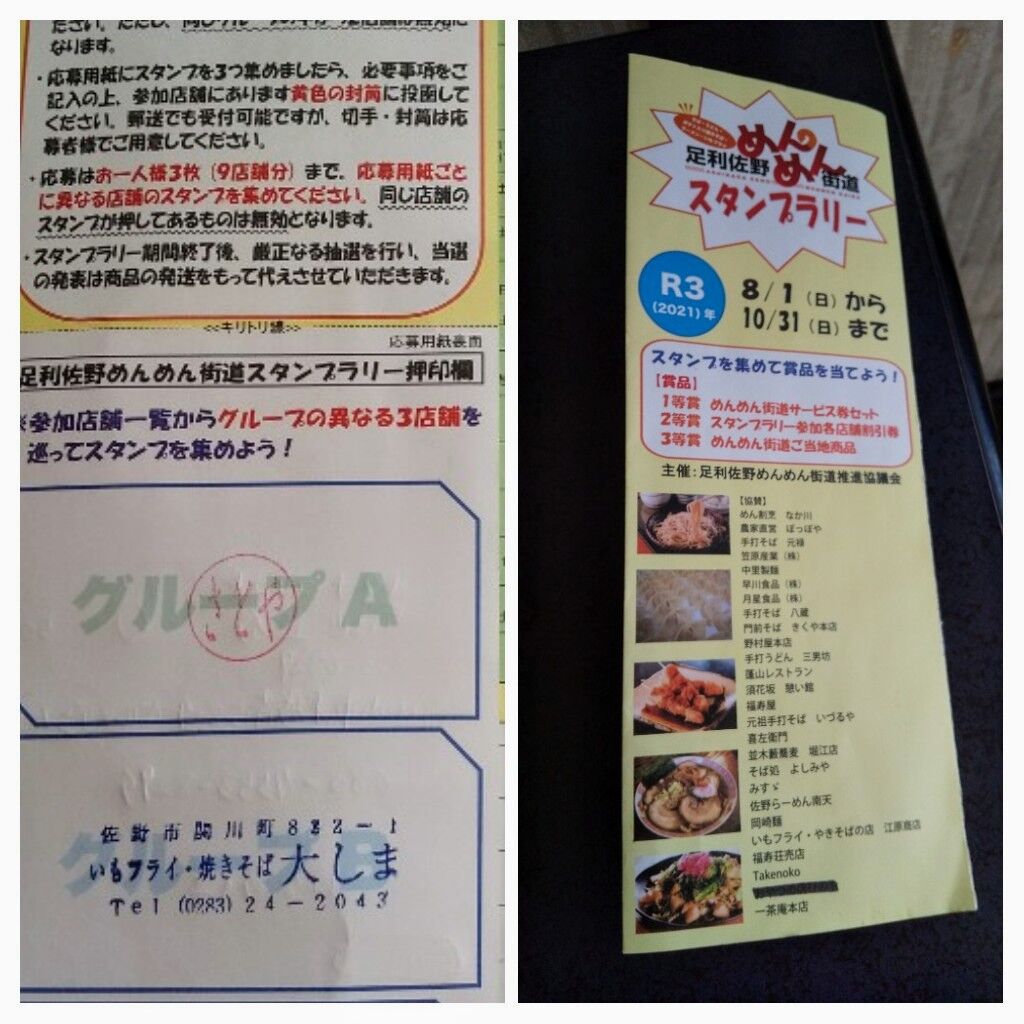 なります。
・応募用紙にスタンプを3つ集めましたら、必要事項をご
記入の上、参加店舗にあります黄色の封筒に投函して
ください。郵送でも受付可能ですが、切手・封筒は応
募者様でご用意してください。
・応募はお一人様3枚（9店舗分）まで、応募用紙ごと
に異なる店舗のスタンプを集めてください。同じ店舗の
スタンプが押してあるものは無効となります。
・スタンプラリー期間終了後、厳正なる抽選を行い、当選
の発表は商品の発送をもって代えさせていただきます。
<<キリトリ線>>
応募用紙表面
足利佐野めんめん街道スタンプラリー押印欄
※参加店舗一覧からグループの異なる3店舗を
巡ってスタンプを集めよう！
グループA
グループB
佐野市関川町822-1
いもフライ・焼きそば 大しま
Tel (0283) 24-2043
足利佐野めんめん街道
スタンプラリー
R3
(2021)年
8/1（日）から
10/31（日）まで
スタンプを集めて賞品を当てよう！
【賞品】
1等賞 めんめん街道サービス券セット
2等賞 スタンプラリー参加各店舗割引券
3等賞 めんめん街道ご当地商品
主催：足利佐野めんめん街道推進協議会
【協賛】
めん割烹 なか川
農家直営 ぽっぽや
手打そば 元禄
笠原産業（株）
中里製麺
早川食品（株）
月星食品（株）
手打そば 八蔵
門前そば きくや本店
野村屋本店
手打うどん 三男坊
蓬山レストラン
須花坂 憩い館
福寿屋
元祖手打そば いづるや
喜左衛門
並木藪蕎麦 堀江店
そば処 よしみや
みすゞ
佐野らーめん南天
岡崎麺
いもフライ・やきそばの店 江原商店
福寿荘売店
Takenoko
一茶庵本店